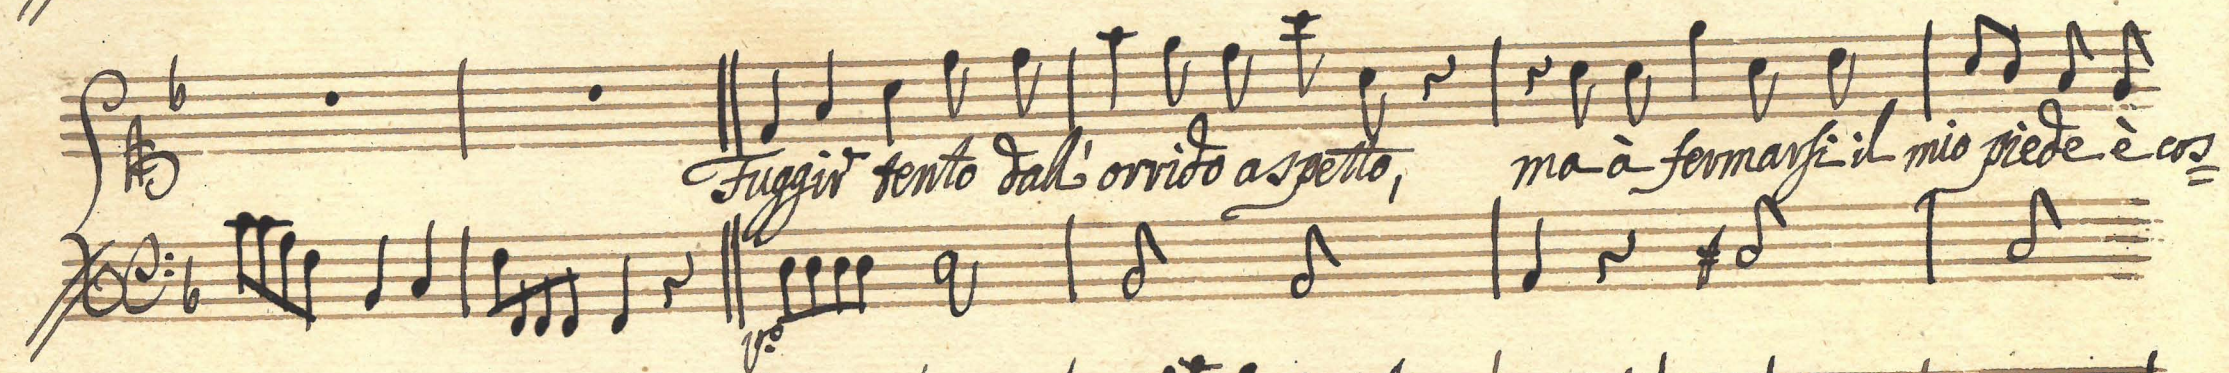 Fuggir tento dall' orrido aspetto, ma à fermarsi il mio piede è cos=
v.o